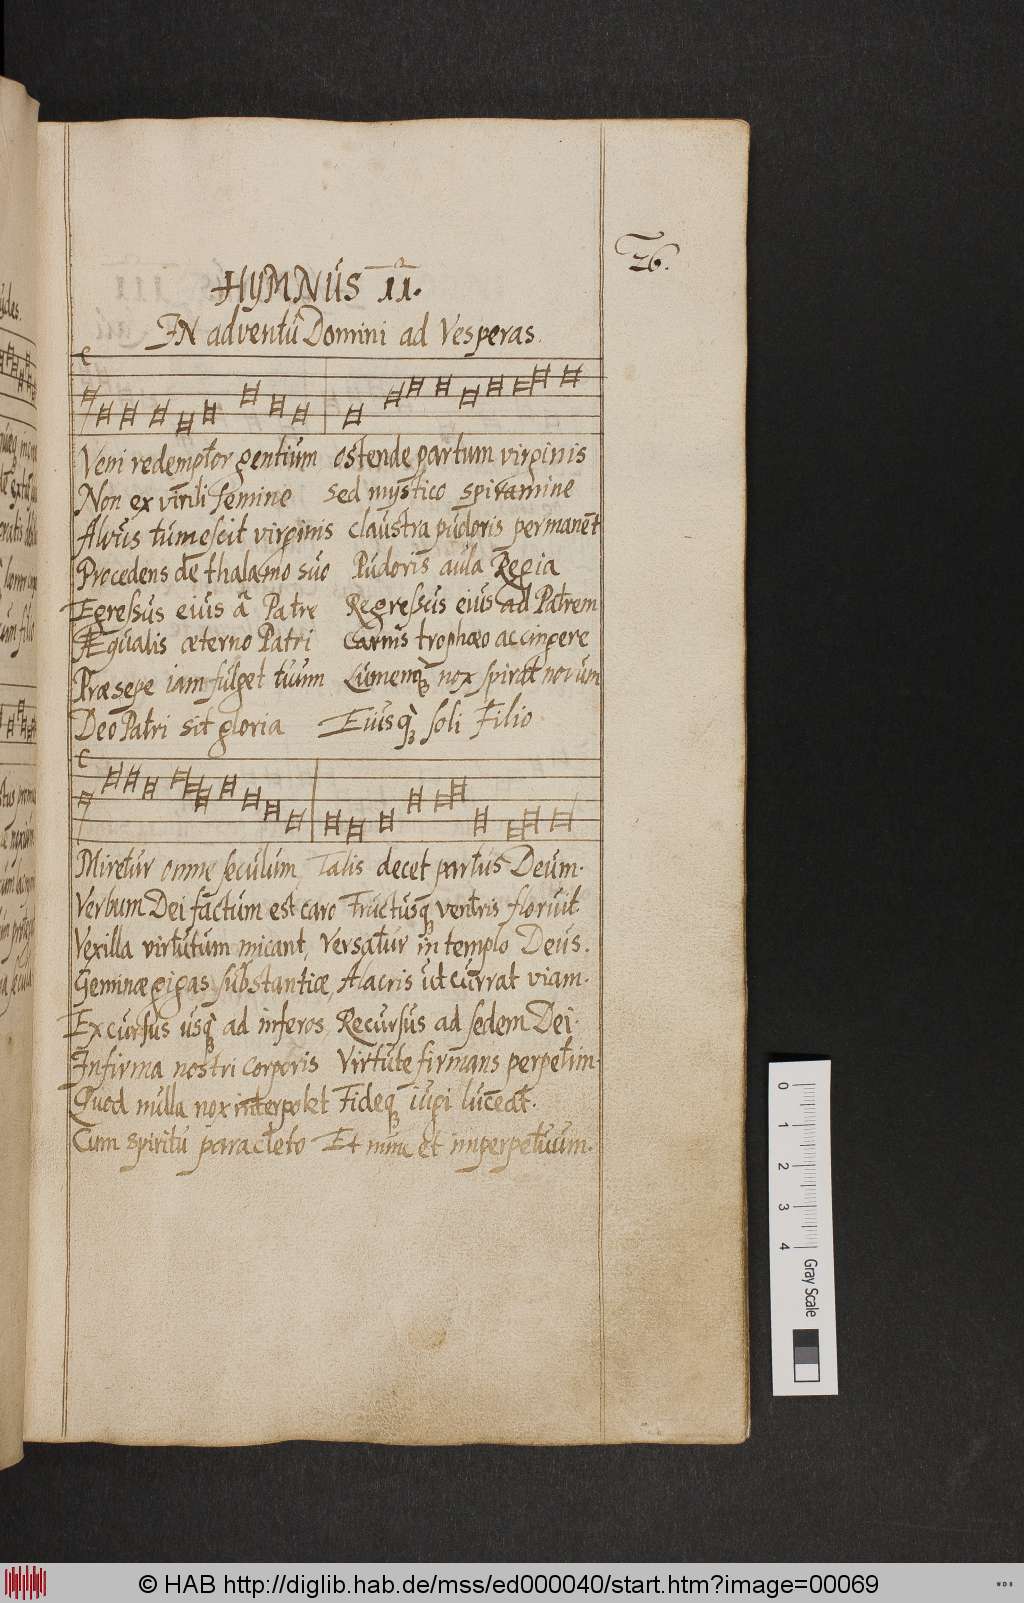 26.
HYMNUS II.
IN adventu Domini ad Vesperas.
Veni redemptor gentium ostende partum virginis
Non ex virili semine sed mystico spiramine
Alvus tumescit virginis claustra pudoris permanēt
Procedens de thalamo suo Pudoris aula Regia
Egressus eius a Patre Regressus eius ad Patrem
Æqualis æterno Patri Carnis trophæo accingere
Præsepe iam fulget tuum Lumenq3 nox spirat novum
Deo Patri sit gloria Eiusq3 soli Filio
Miretur omne seculum, Talis decet partus Deum.
Verbum Dei factum est caro Fructusq3 ventris floruit.
Vexilla virtutum micant, Versatur in templo Deus.
Geminæ gigas substantiæ, Alacris ut currat viam.
Excursus usq3 ad inferos, Recursus ad sedem Dei.
Infirma nostri corporis Virtute firmans perpetim.
Quod nulla nox interpolet Fideq3 iugi luceat.
Cum spiritu paracleto Et nunc et imperpetuum.
0 1 2 3 4
Gray Scale
© HAB http://diglib.hab.de/mss/ed000040/start.htm?image=00069